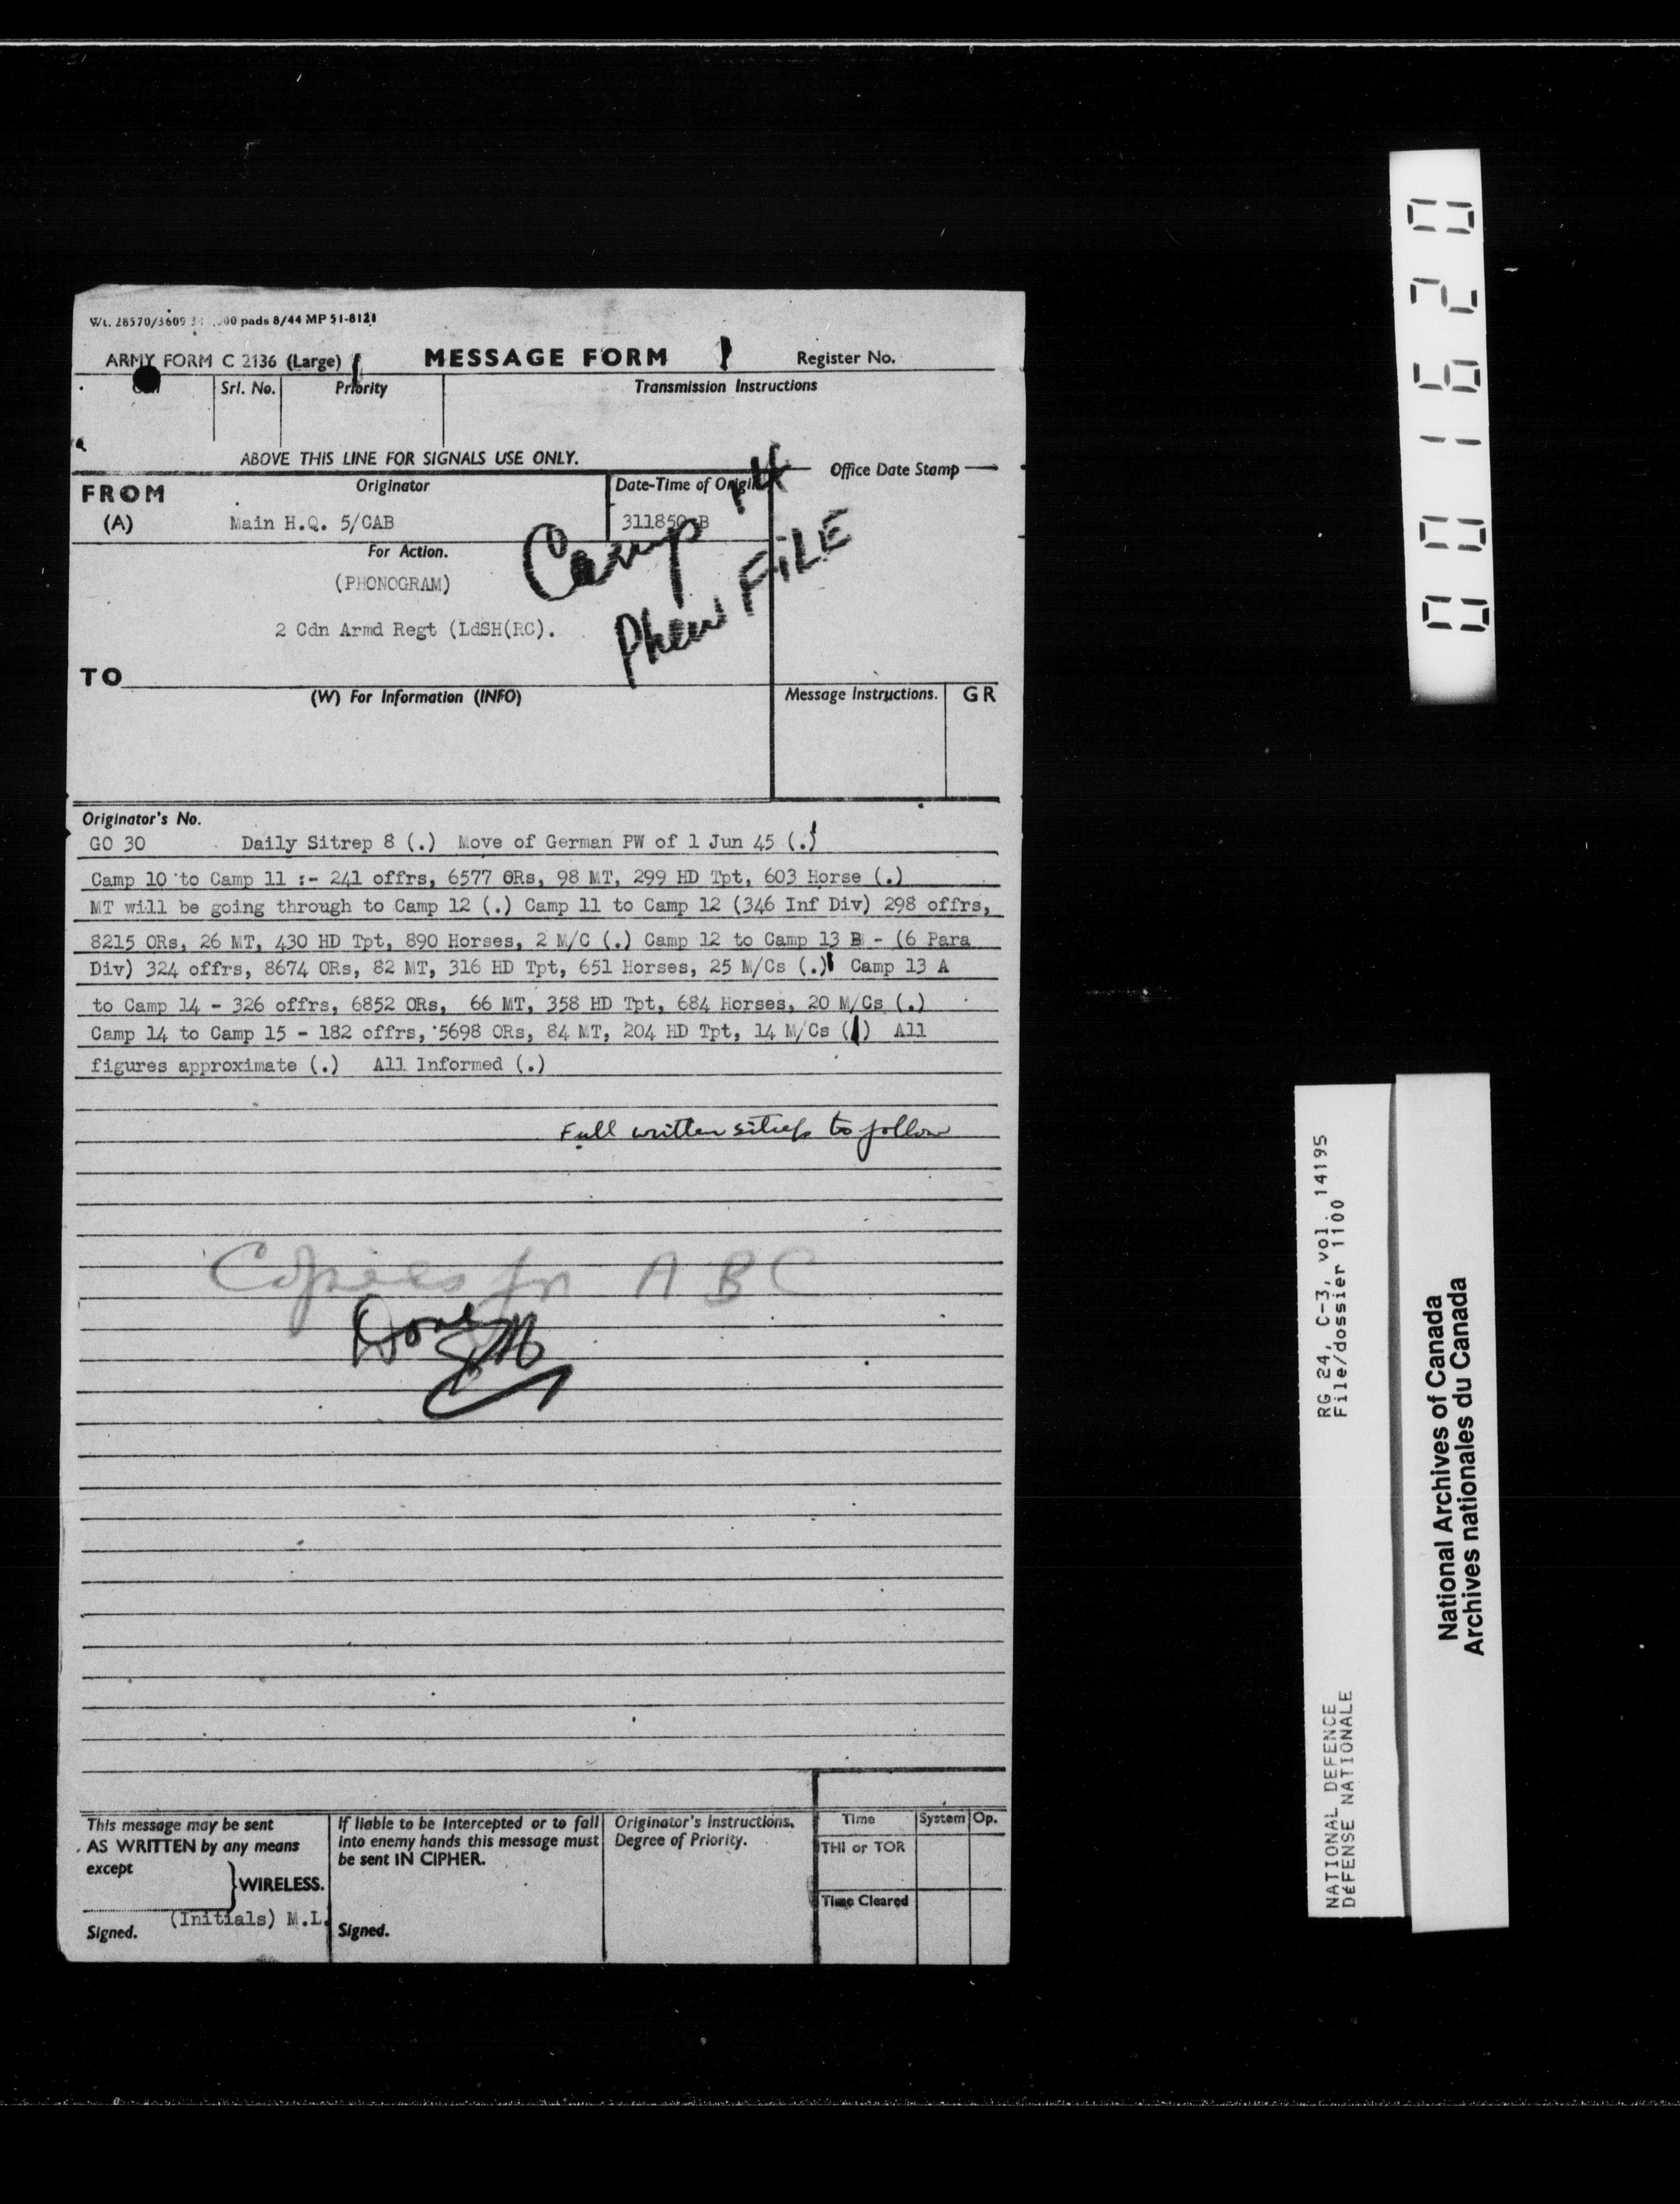 Wt. 28570/3609 00 pads 8/44 MP 51-8121
ARMY FORM C 2136 (Large) MESSAGE FORM Register No.
Srl. No. Priority Transmission Instructions
ABOVE THIS LINE FOR SIGNALS USE ONLY.
Office Date Stamp
FROM Originator Date-Time of Origin
(A) Main H.Q. 5/CAB 311850 B
Camp 14
For Action.
(PHONOGRAM)
FILE
2 Cdn Armd Regt (LdSH(RC).
TO
(W) For Information (INFO) Message Instructions. GR
Originator's No.
GO 30 Daily Sitrep 8 (.) Move of German PW of 1 Jun 45 (.)
Camp 10 to Camp 11 :- 241 offrs, 6577 ORs, 98 MT, 299 HD Tpt, 603 Horse (.)
MT will be going through to Camp 12 (.) Camp 11 to Camp 12 (346 Inf Div) 298 offrs,
8215 ORs, 26 MT, 430 HD Tpt, 890 Horses, 2 M/C (.) Camp 12 to Camp 13 B - (6 Para
Div) 324 offrs, 8674 ORs, 82 MT, 316 HD Tpt, 651 Horses, 25 M/Cs (.) Camp 13 A
to Camp 14 - 326 offrs, 6852 ORs, 66 MT, 358 HD Tpt, 684 Horses, 20 M/Cs (.)
Camp 14 to Camp 15 - 182 offrs, 5698 ORs, 84 MT, 204 HD Tpt, 14 M/Cs (.) All
figures approximate (.) All Informed (.)
Full written sitrep to follow
Copies for A B C
Done
This message may be sent
AS WRITTEN by any means
except
WIRELESS.
(Initials) M.L.
Signed.
If liable to be intercepted or to fall
into enemy hands this message must
be sent IN CIPHER.
Signed.
Originator's Instructions.
Degree of Priority.
Time System Op.
THI or TOR
Time Cleared
001620
RG 24, C-3, vol. 14195
File/dossier 1100
NATIONAL DEFENCE
DÉFENSE NATIONALE
National Archives of Canada
Archives nationales du Canada